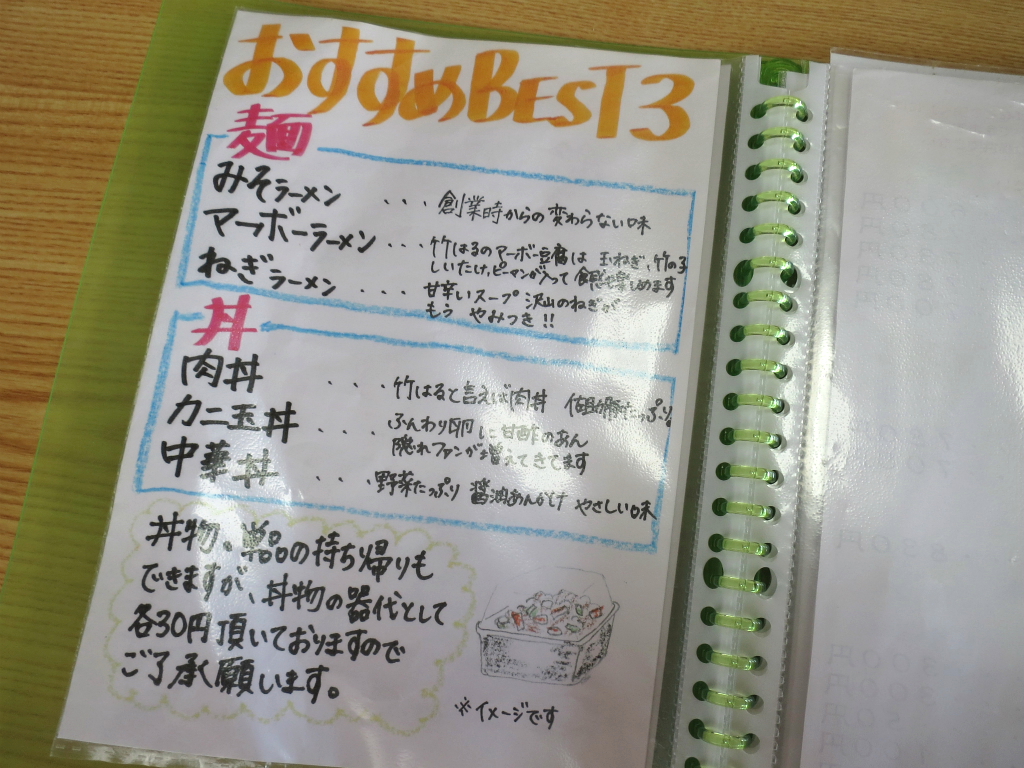 おすすめBEST3
麺
みそラーメン ・・・ 創業時からの変わらない味
マーボーラーメン ・・・ 竹はるのマーボ豆腐は 玉ねぎ、竹の子
しいたけ、ピーマンが入って 食感も楽しめます
ねぎラーメン ・・・ 甘辛いスープ 沢山のねぎが
もう やみつき!!
丼
肉丼 ・・・ 竹はると言えば肉丼 たっぷり
カニ玉丼 ・・・ ふんわり卵に甘酢のあん
隠れファンが増えてきてます
中華丼 ・・・ 野菜たっぷり 醤油あんかけ やさしい味
丼物、単品の持ち帰りも
できますが、丼物の器代として
各30円頂いておりますので
ご了承願います。
※イメージです